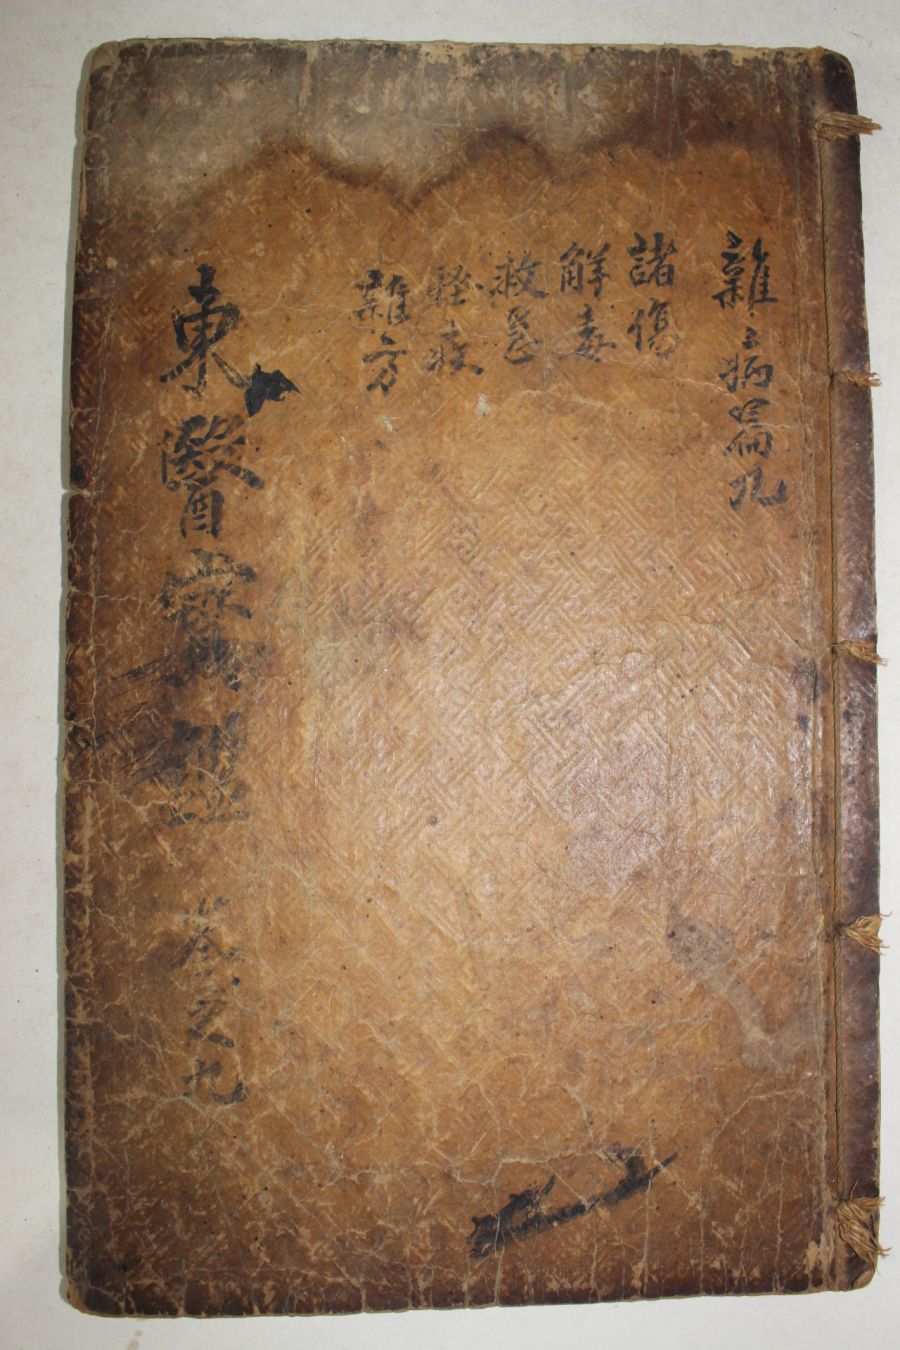 雜病篇九
諸傷
解毒
救急
怪疾
雜方
東醫寶鑑 卷之九